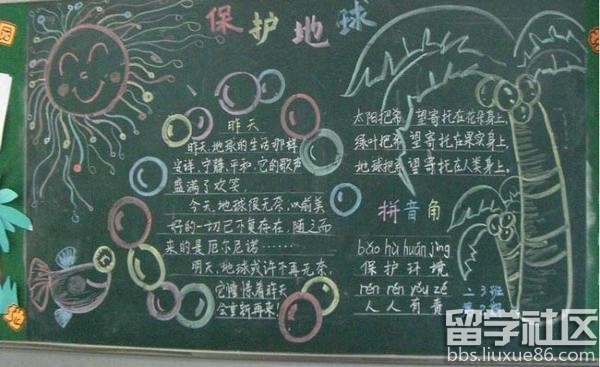 保护地球
昨天
昨天,地球的生活那样
安详,宁静,平和,它的歌声
盛满了欢笑。
今天,地球很无奈,以前美
好的一切已不复存在,随之而
来的是厄尔尼诺……
明天,地球或许不再无奈,
它憧憬着昨天
会重新再来!
太阳把希望寄托在花朵身上,
绿叶把希望寄托在果实身上,
地球把希望寄托在人类身上。
拼音角
bǎo hù huán jìng
保护环境
rén rén yǒu zé
人人有责
二3班
园
地
留学社区
bbs.liuxue86.com